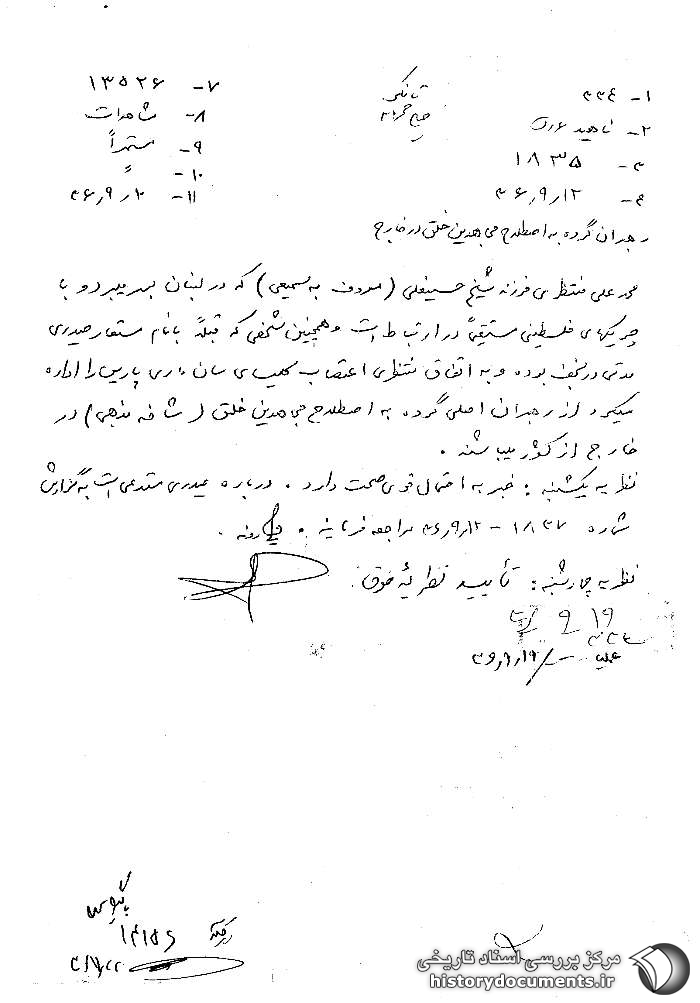 ۱- ۳۳۴
۲- ناهید
۳- ۱۸۳۵
۴- ۳۶٫۹٫۱۲
۷- ۱۳۵۲۶
۸- مشاهدات
۹- مستمراً
۱۰-
۱۱- ۳۶٫۹٫۱۰
رهبران گروه به اصطلاح مجاهدین خلق در خارج
محمد علی منتظری فرزند شیخ حسینعلی (معروف به سمیعی) که در لبنان بسر میبرد و با
چریکهای فلسطینی مستقیماً در ارتباط است و همچنین شخصی که قبلاً با نام مستعار حیدری
مدتی در نجف بوده و به اتفاق منتظری اعتصاب کلیسای سان ماری پاریس را اداره
میکرد از رهبران اصلی گروه به اصطلاح مجاهدین خلق (شاخه مذهبی) در
خارج از کشور میباشند .
نظریه یکشنبه : خبر به احتمال قوی صحت دارد . درباره حیدری مستدعی است به گزارش
شماره ۱۸۳۷ - ۳۶٫۹٫۱۲ مراجعه فرمایند .
نظریه چهارشنبه : تأیید نظریه فوق .
۱۹ ۹
مرکز بررسی اسناد تاریخی
historydocuments.ir